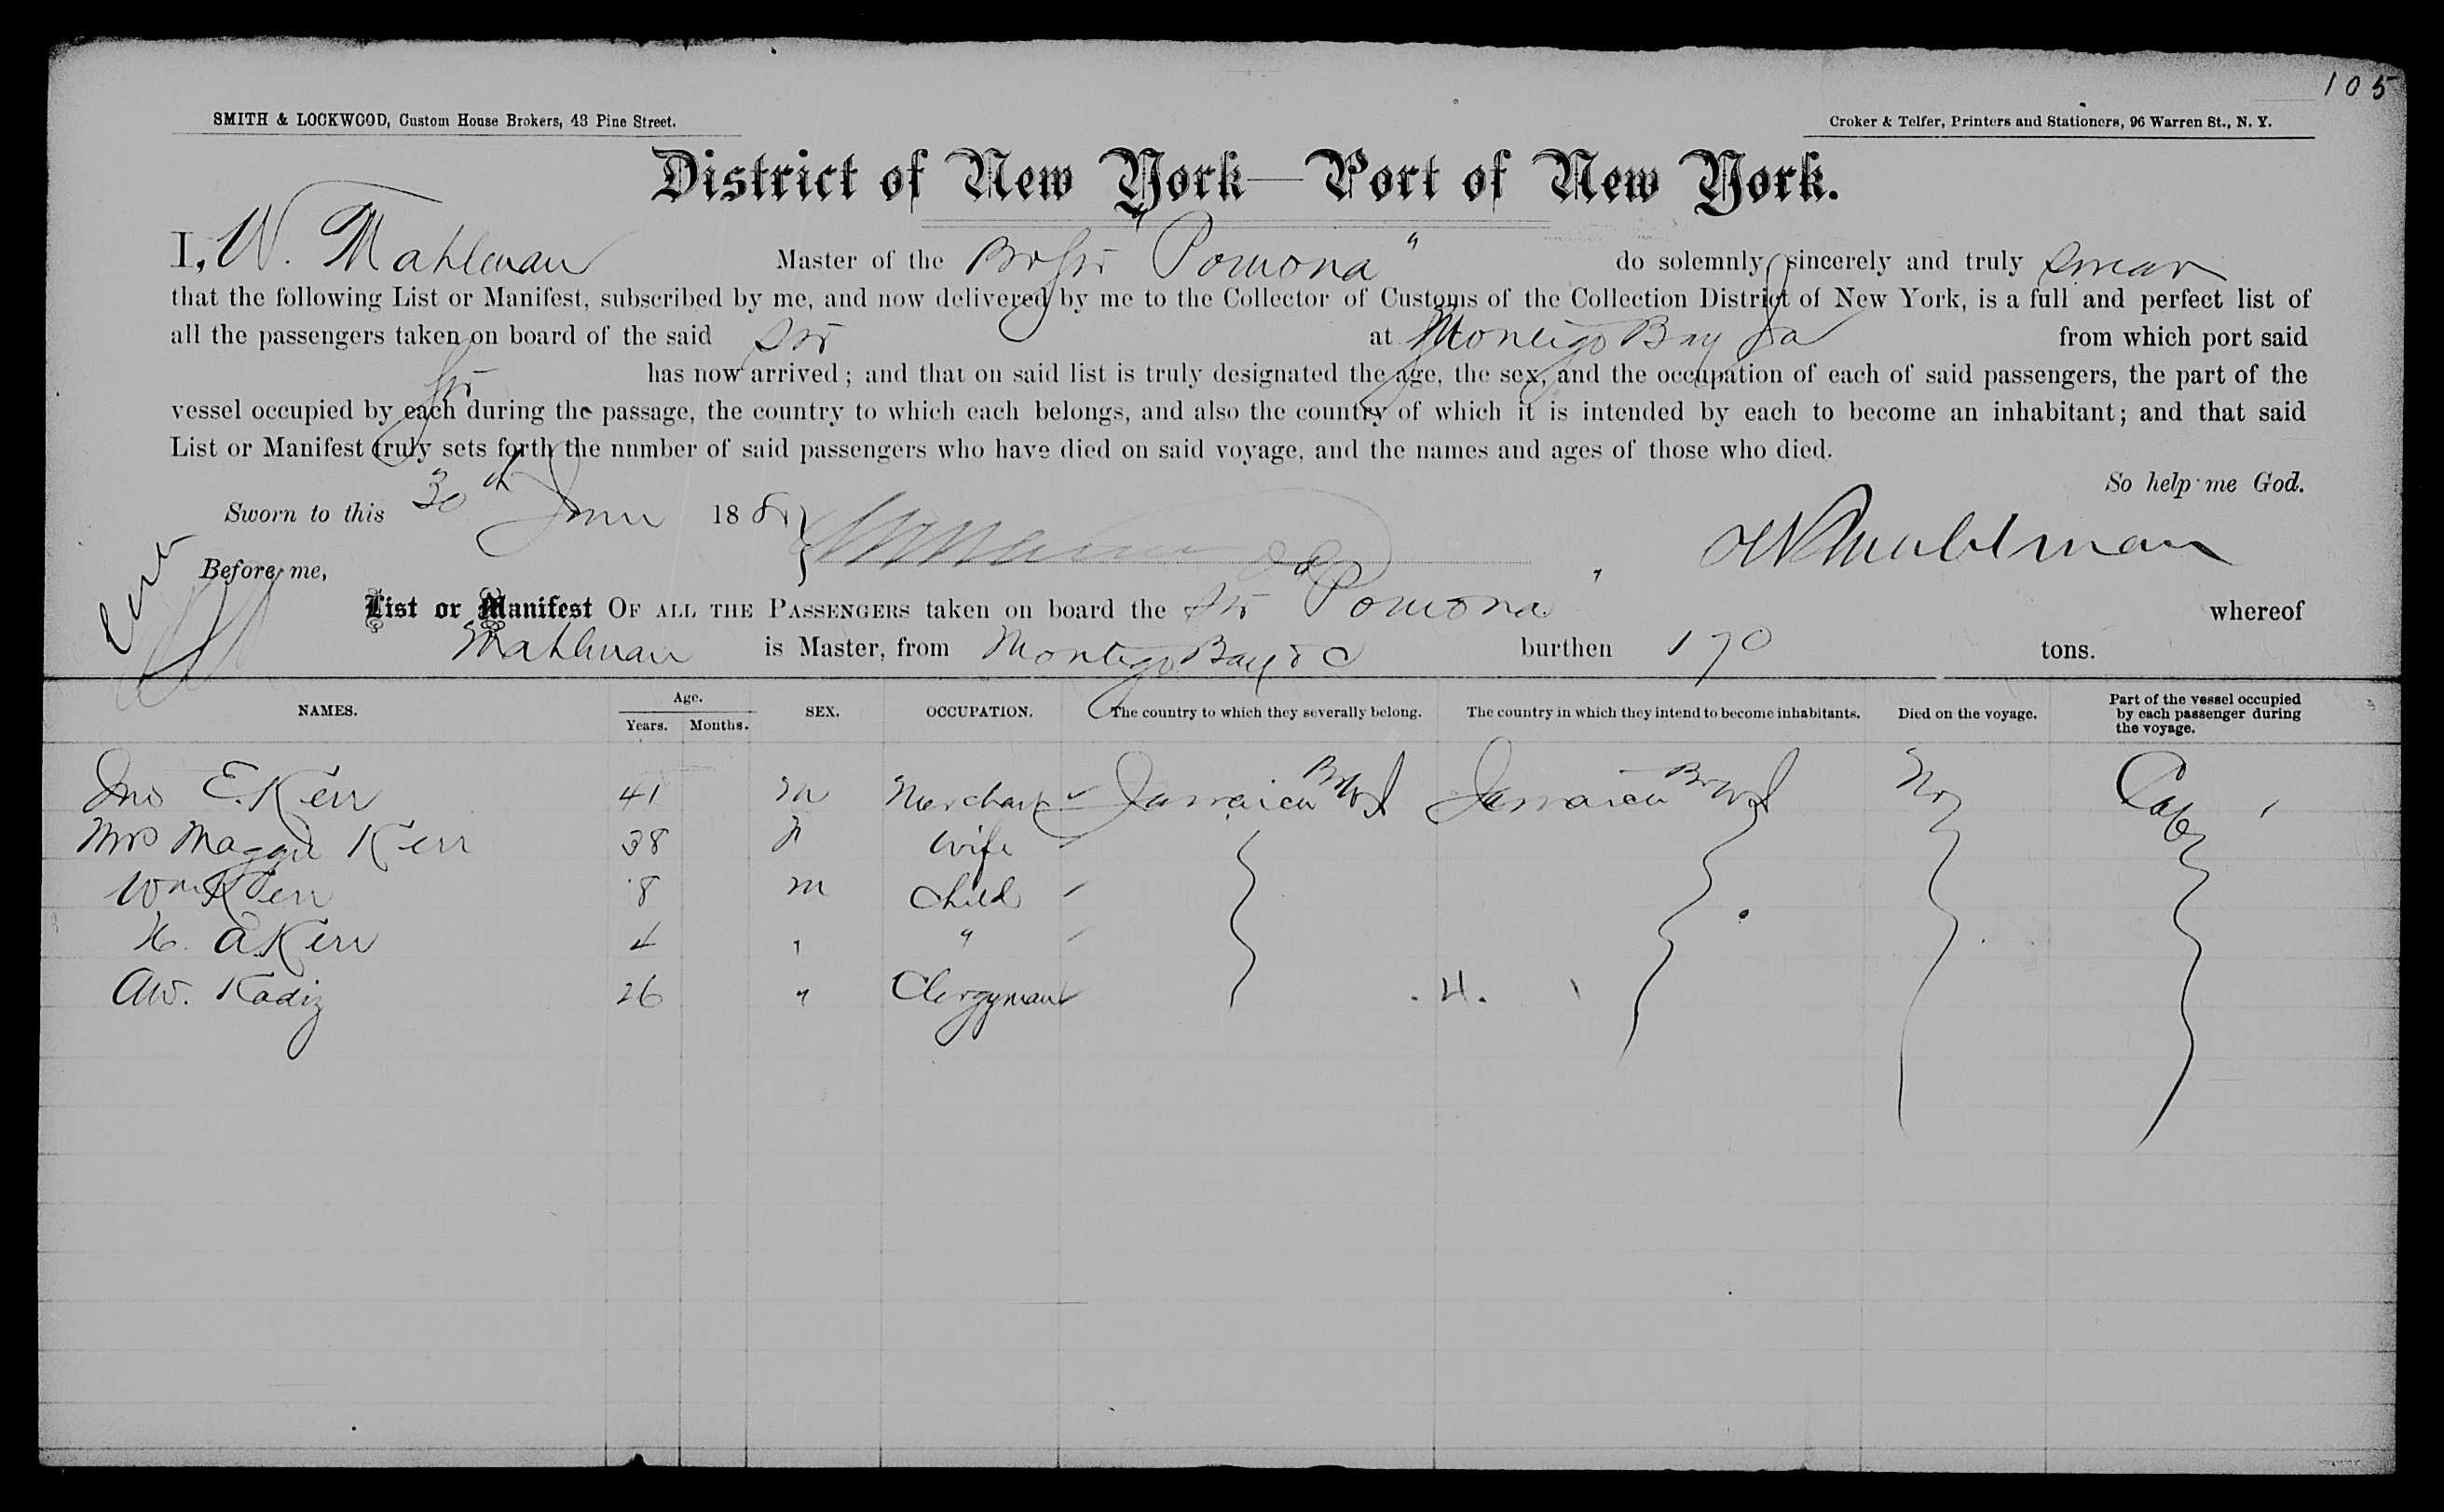 105
SMITH & LOCKWOOD, Custom House Brokers, 43 Pine Street.
Croker & Telfer, Printers and Stationers, 96 Warren St., N. Y.
District of New York—Port of New York.
I, W. Mahlman Master of the Br Str "Pomona" do solemnly, sincerely and truly swear
that the following List or Manifest, subscribed by me, and now delivered by me to the Collector of Customs of the Collection District of New York, is a full and perfect list of
all the passengers taken on board of the said Str at Montego Bay Ja from which port said
Str has now arrived; and that on said list is truly designated the age, the sex, and the occupation of each of said passengers, the part of the
vessel occupied by each during the passage, the country to which each belongs, and also the country of which it is intended by each to become an inhabitant; and that said
List or Manifest truly sets forth the number of said passengers who have died on said voyage, and the names and ages of those who died.
So help me God.
Sworn to this 30th June 188
W Mahlman
Before me,
List or Manifest OF ALL THE PASSENGERS taken on board the Str Pomona " whereof
Mahlman is Master, from Montego Bay burthen 170 tons.
NAMES. Age. Years. Months. SEX. OCCUPATION. The country to which they severally belong. The country in which they intend to become inhabitants. Died on the voyage. Part of the vessel occupied by each passenger during the voyage.
Jno E. Kerr 41 M Merchant Jamaica BWI Jamaica BWI No Cab
Mrs Maggie Kerr 38 F Wife
Wm Kerr 8 M Child
H. A Kerr 4 " "
AW. Kadiz 26 " Clergyman